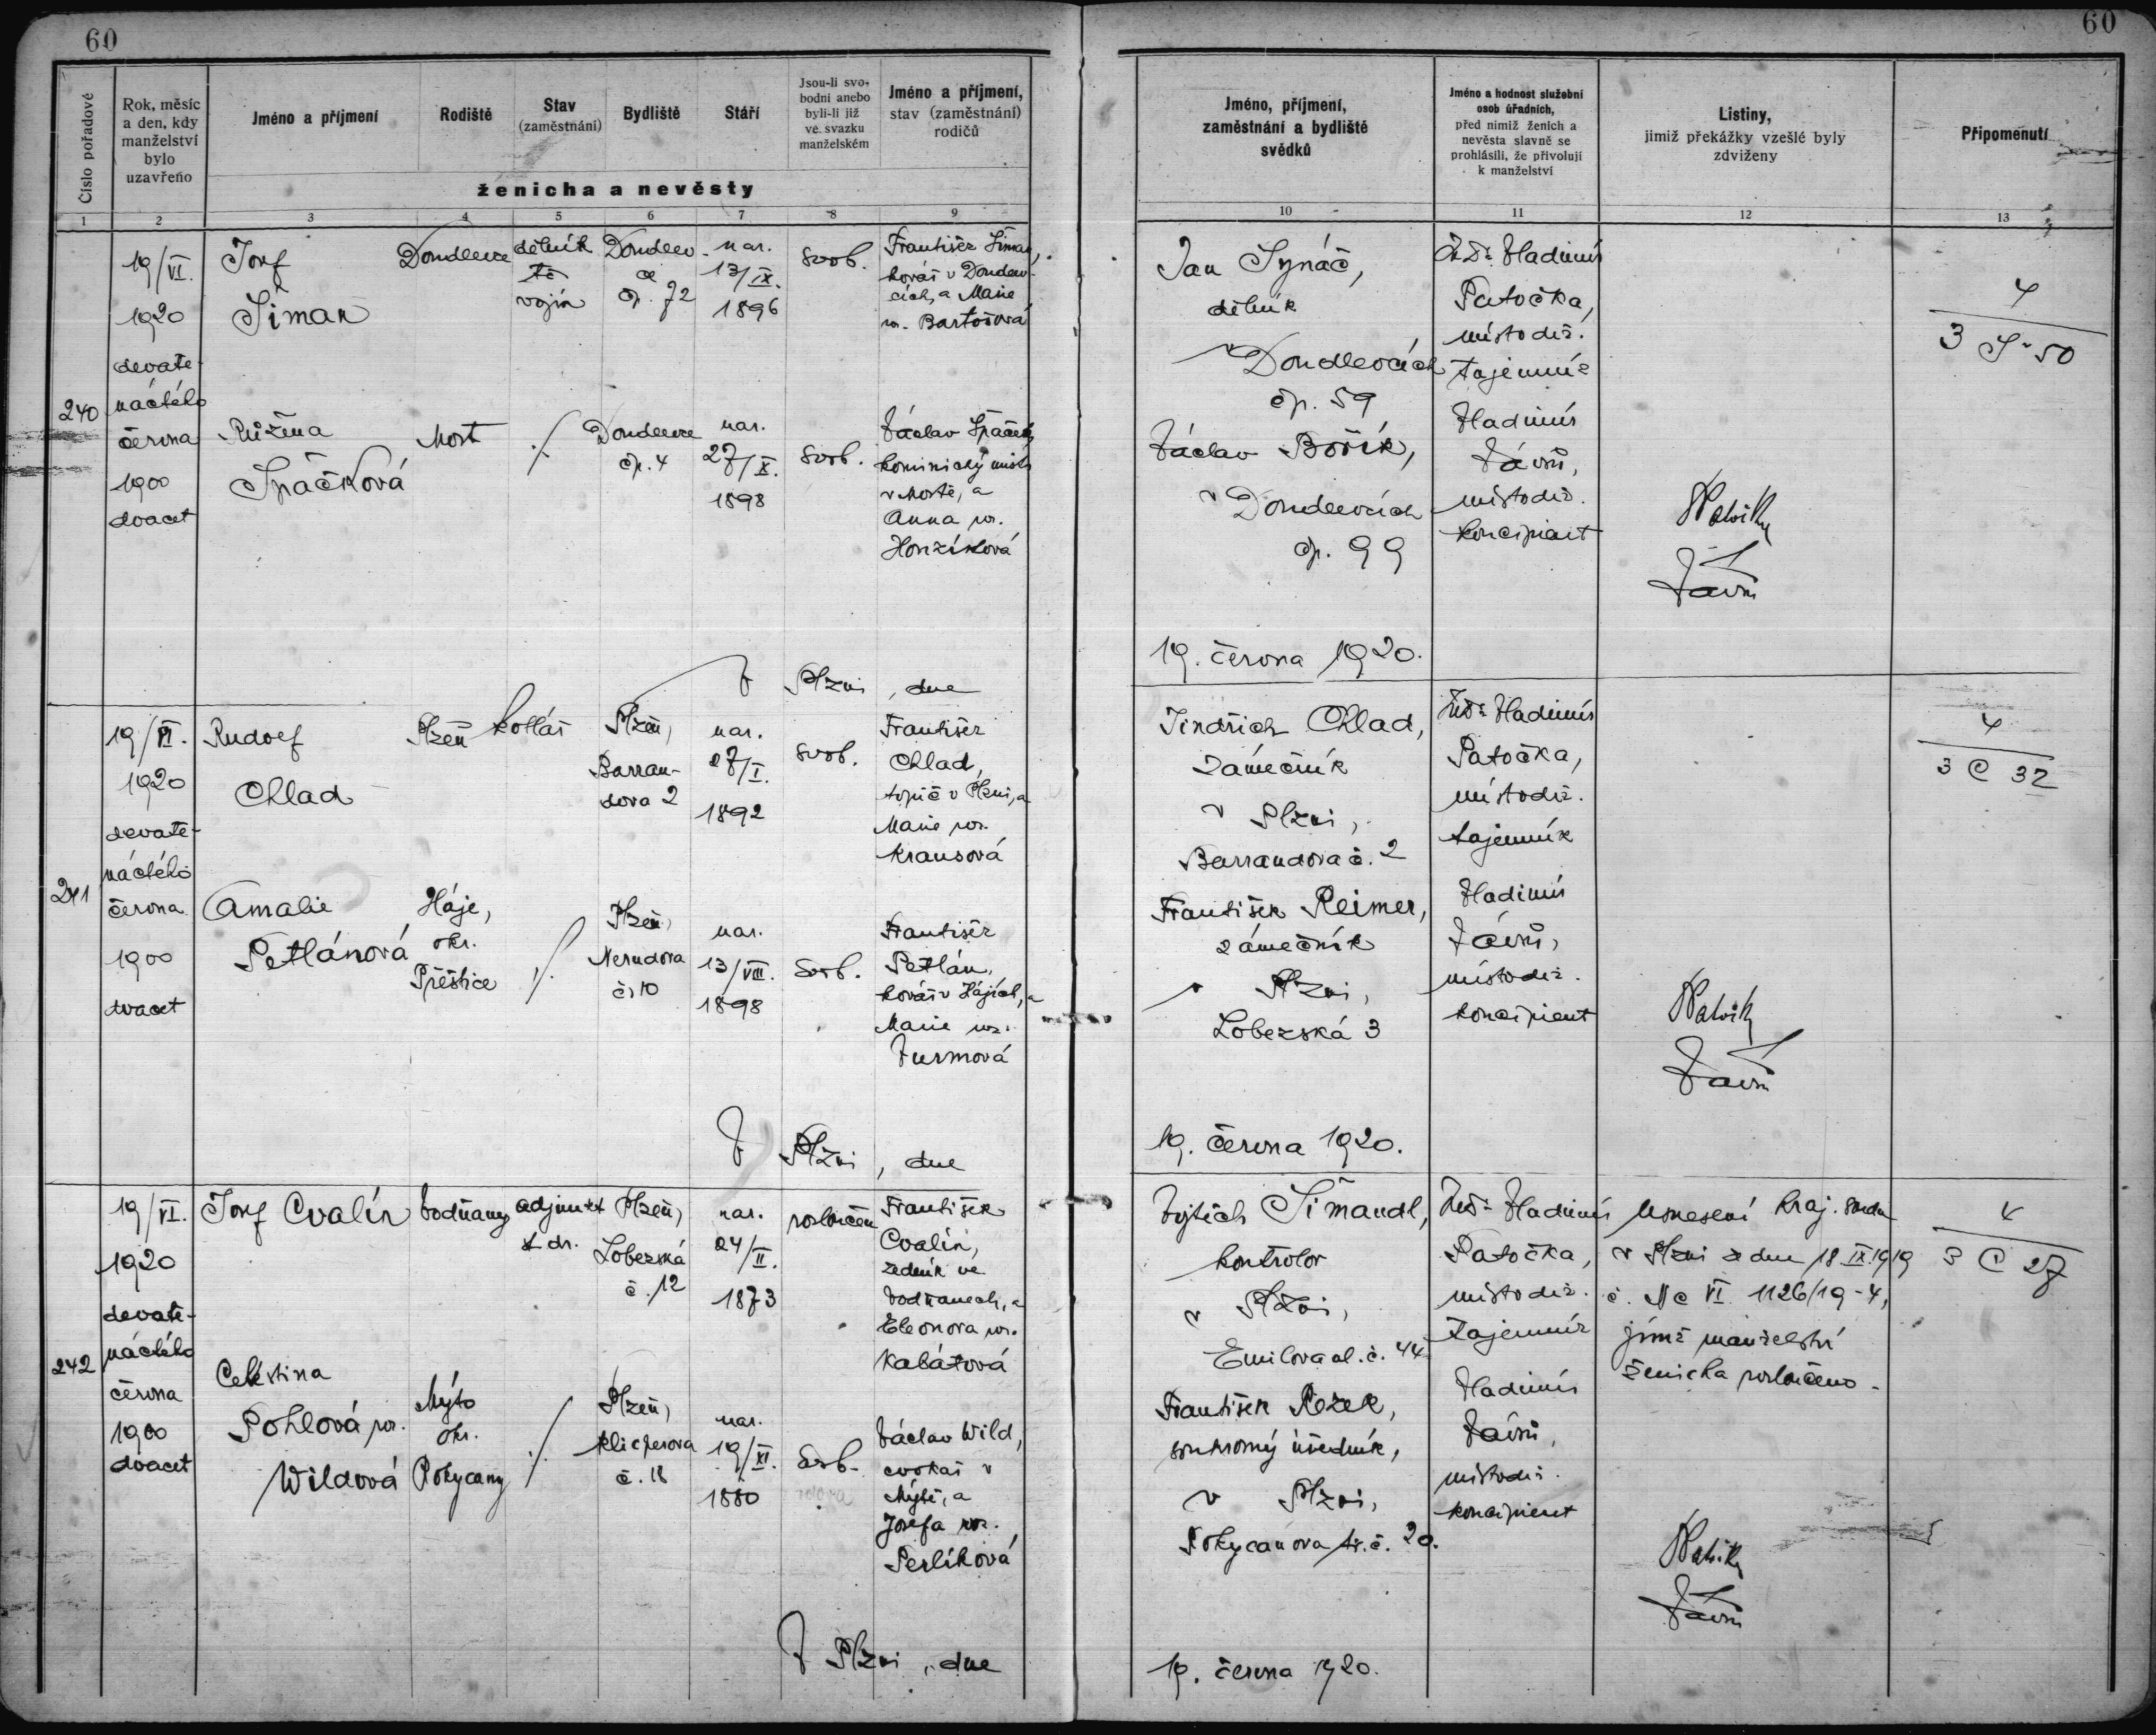 60
60
Číslo pořadové
Rok, měsíc
a den, kdy
manželství
bylo
uzavřeno
Jméno a příjmení
Rodiště
Stav
(zaměstnání)
Bydliště
Stáří
Jsou-li svo-
bodni anebo
byli-li již
ve svazku
manželském
Jméno a příjmení,
stav (zaměstnání)
rodičů
ženicha a nevěsty
Jméno, příjmení,
zaměstnání a bydliště
svědků
Jméno a hodnost služební
osob úřadních,
před nimiž ženich a
nevěsta slavně se
prohlásili, že přivolují
k manželství
Listiny,
jimiž překážky vzešlé byly
zdviženy
Připomenutí
1
2
3
4
5
6
7
8
9
10
11
12
13
240
19/VI.
1920
devate-
náctého
června
1900
dvacet
Josef
Šimak
Doudlevce
dělník
vojín
Doudlev-
ce
čp. 72
nar.
13/IX.
1896
svob.
František Šimak,
kovář v Doudlev-
cích, a Marie
roz. Bartošová
Růžena
Špačková
Most
./.
Doudlevce
čp. 4
nar.
27/X.
1898
svob.
Václav Špaček,
kominický mistr
v Mostě, a
Anna roz.
Honzíková
Jan Synáč,
dělník
v Doudlevcích
čp. 59
Václav Bořík,
v Doudlevcích
čp. 99
JUDr. Vladimír
Patočka,
místodrž.
tajemník
Vladimír
Vávrů,
místodrž.
koncipient
Vávrů
4
3 Š 50
V Plzni, dne
19. června 1920.
241
19/VI.
1920
devate-
náctého
června
1900
dvacet
Rudolf
Chlad
Plzeň
kotlář
Plzeň,
Barran-
dova 2
nar.
27/I.
1892
svob.
František
Chlad,
topič v Plzni, a
Marie roz.
Krausová
Amalie
Petlánová
Háje,
okr.
Přeštice
./.
Plzeň,
Nerudova
č. 10
nar.
13/VIII.
1898
svob.
František
Petlán,
kovář v Hájích, a
Marie roz.
Vurmová
Jindřich Chlad,
zámečník
v Plzni,
Barrandova č. 2
František Reimer,
zámečník
v Plzni,
Lobezská 3
JUDr. Vladimír
Patočka,
místodrž.
tajemník
Vladimír
Vávrů,
místodrž.
koncipient
Vávrů
4
3 C 32
V Plzni, dne
19. června 1920.
242
19/VI.
1920
devate-
náctého
června
1900
dvacet
Josef Cvalín
Vodňany
adjunkt
st. dr.
Plzeň,
Lobezská
č. 12
nar.
24/II.
1873
rozloučen
František
Cvalín,
zedník ve
Vodňanech, a
Eleonora roz.
Kabátová
Celestina
Pohlová roz.
Wildová
Mýto
okr.
Rokycany
./.
Plzeň,
Klicperova
č. 18
nar.
19/XI.
1880
svob.
Václav Wild,
cvokař v
Mýtě, a
Josefa roz.
Perlíková
Vojtěch Šimandl,
kontrolor
v Plzni,
Emilova ul. č. 44
František Rezek,
soukromý úředník,
v Plzni,
Rokycanova tř. č. 20.
JUDr. Vladimír
Patočka,
místodrž.
tajemník
Vladimír
Vávrů,
místodrž.
koncipient
Usnesení kraj. soudu
v Plzni ze dne 18 IX 1919
č. Nc VI 1126/19-4,
jímž manželství
ženicha rozloučeno.
Vávrů
4
3 C 27
V Plzni, dne
19. června 1920.